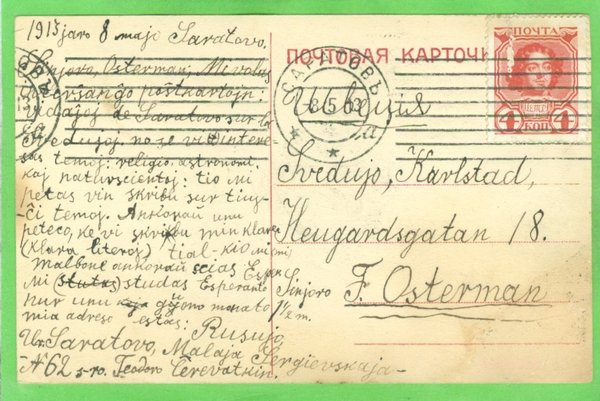 1913 jaro 8 majo Saratovo.
Sinjoro, Osterman, Mi volas
poŝtkartojn:
vidaĵoj de Saratovo sur
Svedujoj, no se vi interesas
temoj: religio, astronomi
kaj naturscientsj: tio mi
petas vin skribu sur tiuj-
ĉi temoj. Ankoraŭ unu
peteco, ke vi skribu min klare
(klara literos) tial-kio mi
malbone ankoraŭ scias Espe
Mi studas Esperanto
nur unu monato 1½ m.
mia adreso estas: Rusujo,
Saratovo, Malaja Sergievskaja-
N 62 s-ro. Teodoro Ĉerevatkin.
ПОЧТОВАЯ КАРТОЧК
САРАТОВЪ
8.5.
ПОЧТА
4 КОП 4
Швеция
Svedujo, Karlstad,
Heugardsgatan 18.
Sinjoro
F. Osterman